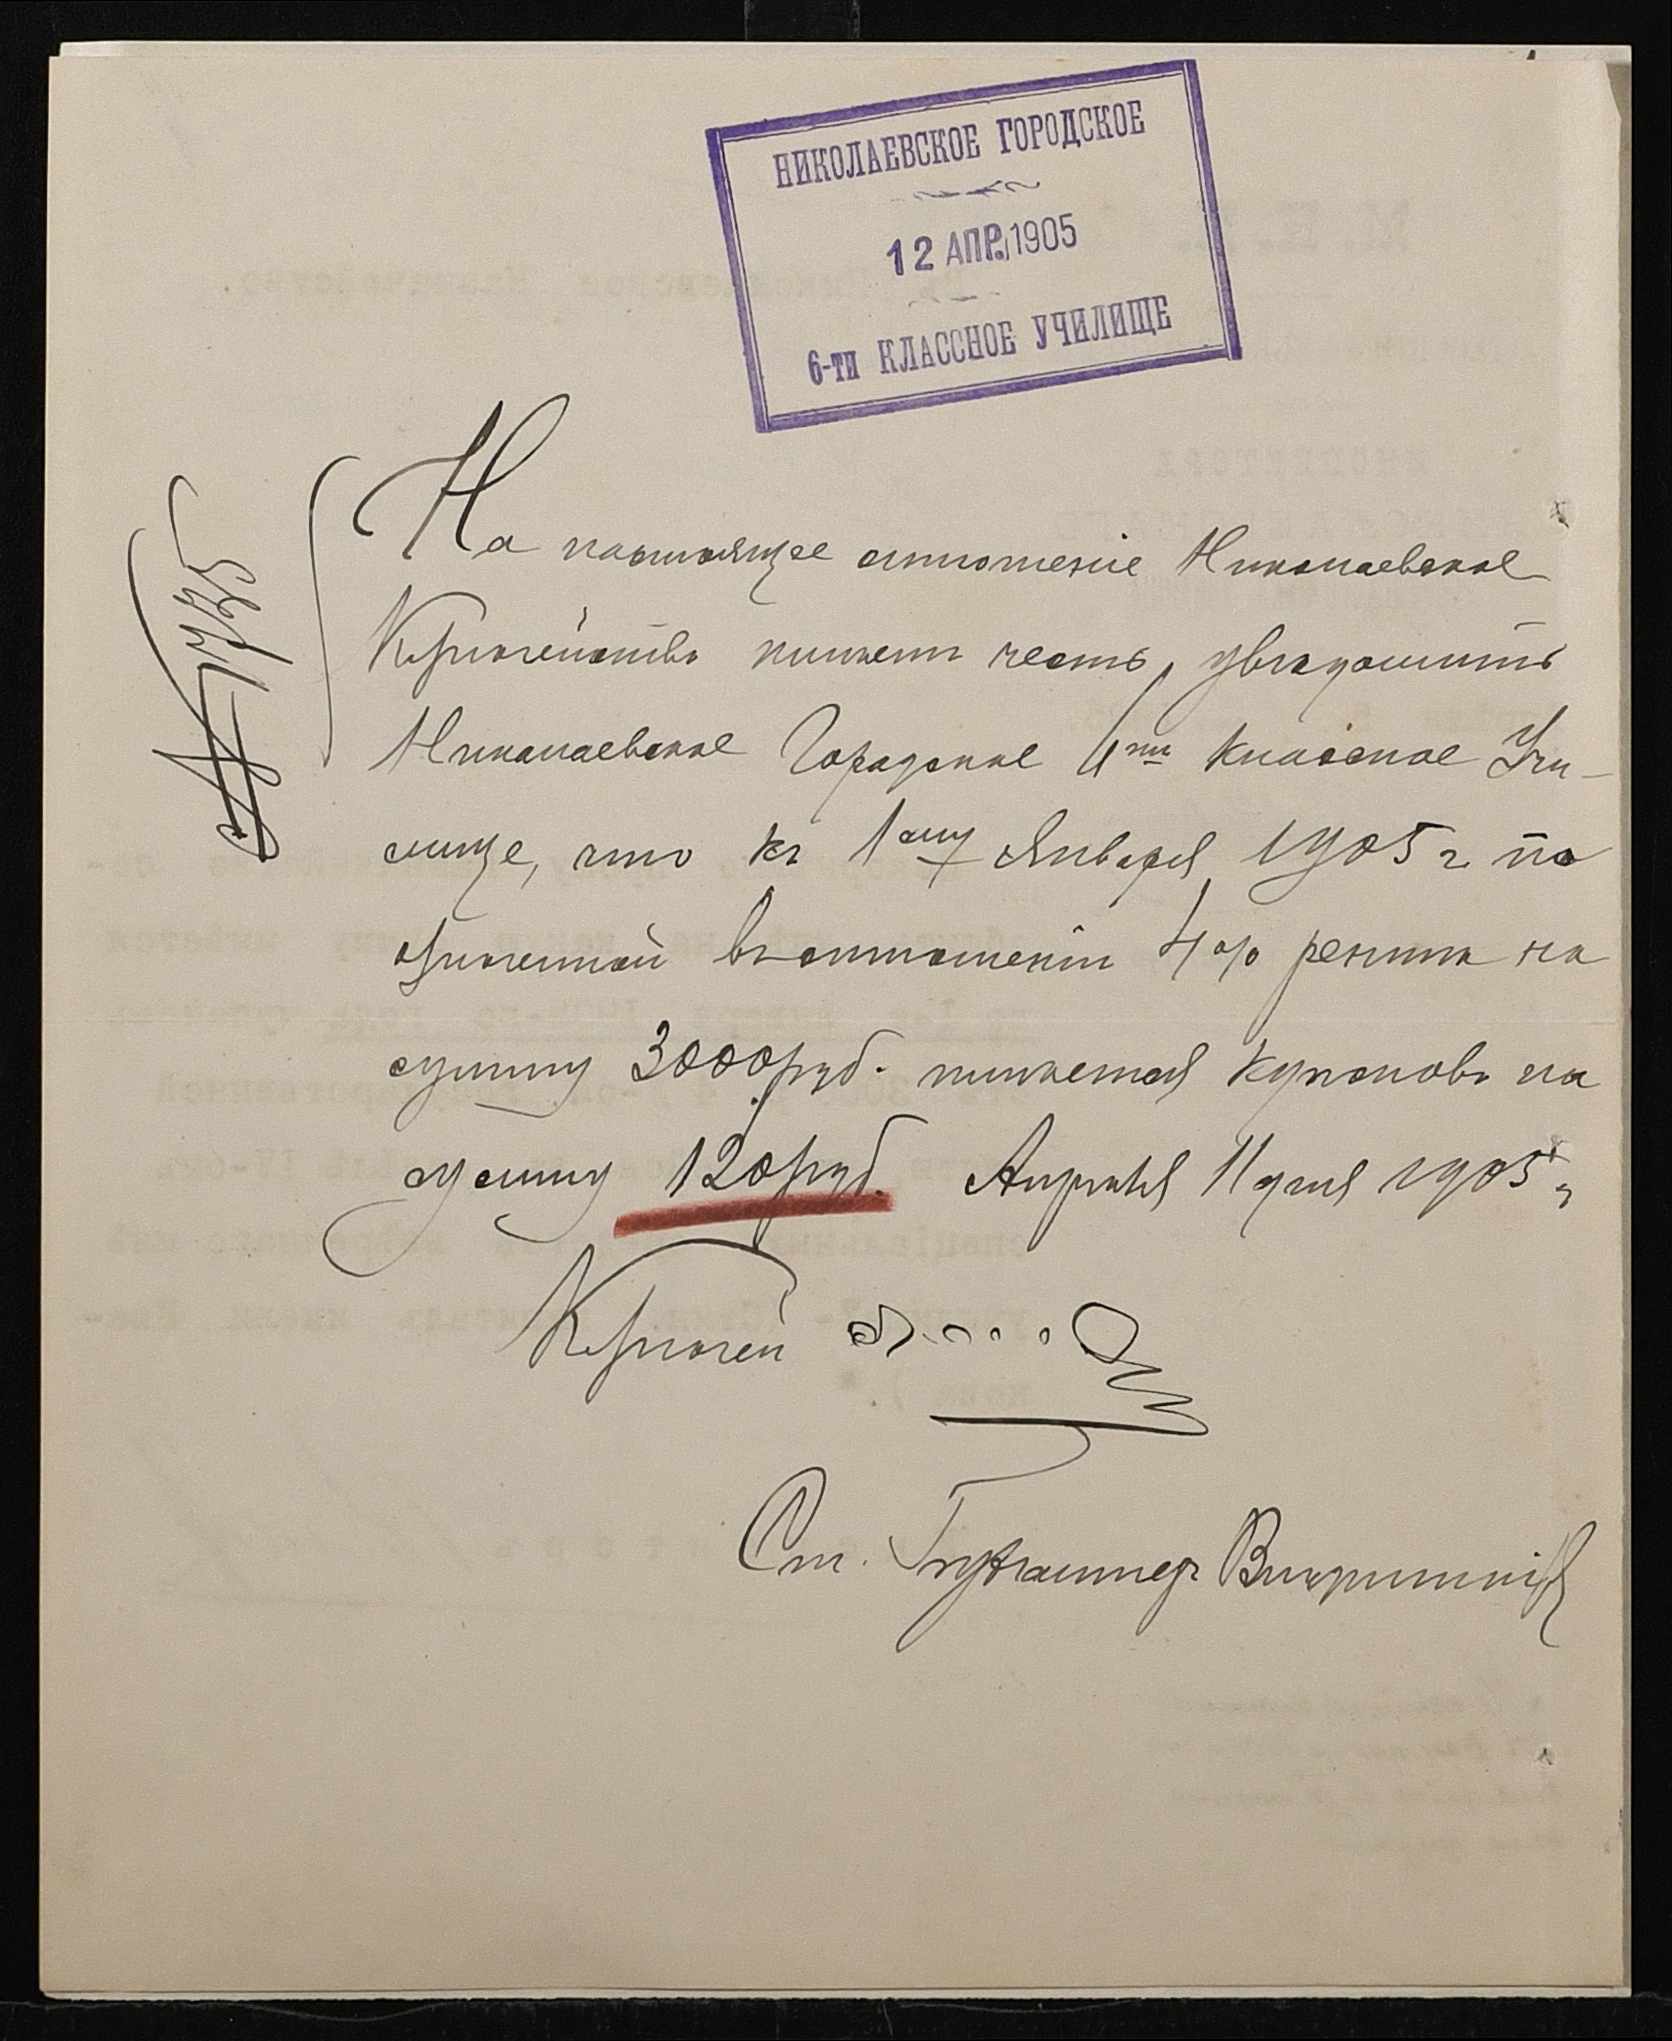 НИКОЛАЕВСКОЕ ГОРОДСКОЕ
12 АПР. 1905
6-ти КЛАССНОЕ УЧИЛИЩЕ
На настоящее отношеніе Николаевское
Казначейство имѣетъ честь увѣдомить
Николаевское Городское 6ти классное Учи-
лище, что къ 1ому Января 1905 г по
означенной въ отношеніи 4% рентѣ на
сумму 3000 руб. имѣется купоновъ на
сумму 120 руб. Апрѣля 11 дня 1905 г
Казначей
Ст. Бухгалтеръ